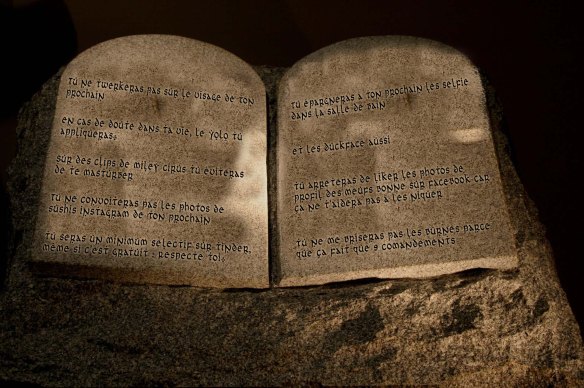 Tu ne twerkeras pas sur le visage de ton
prochain
En cas de doute dans ta vie, le yolo tu
appliqueras.
Sur des clips de Miley Cirus tu éviteras
de te masturber
Tu ne convoiteras pas les photos de
sushis instagram de ton prochain
Tu seras un minimum selectif sur tinder,
même si c'est gratuit : respecte toi.
Tu épargneras a ton prochain les selfie
dans la salle de bain
Et les duckface aussi
Tu arreteras de liker les photos de
profil des meufs bonne sur facebook car
ça ne t'aidera pas à les niquer
Tu ne me briseras pas les burnes parce
que ça fait que 9 comandements